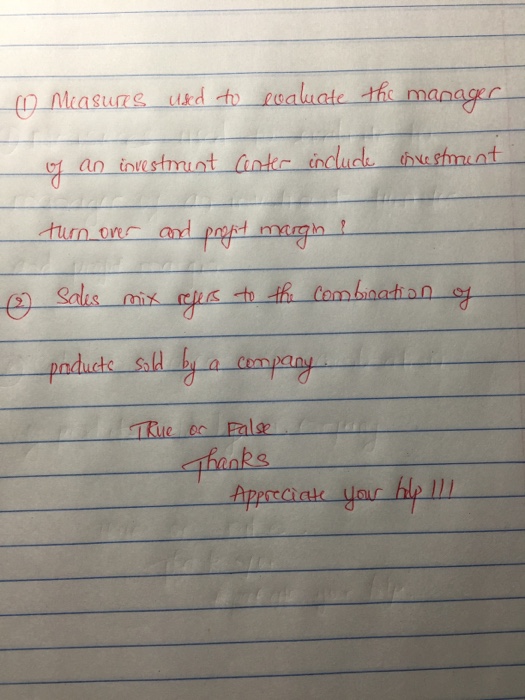 ① Measures used to evaluate the manager
of an investment Center include investment
turn over and profit margin ?
② Sales mix refers to the combination of
products sold by a company.
TRue or False
Thanks
Appreciate your help !!!